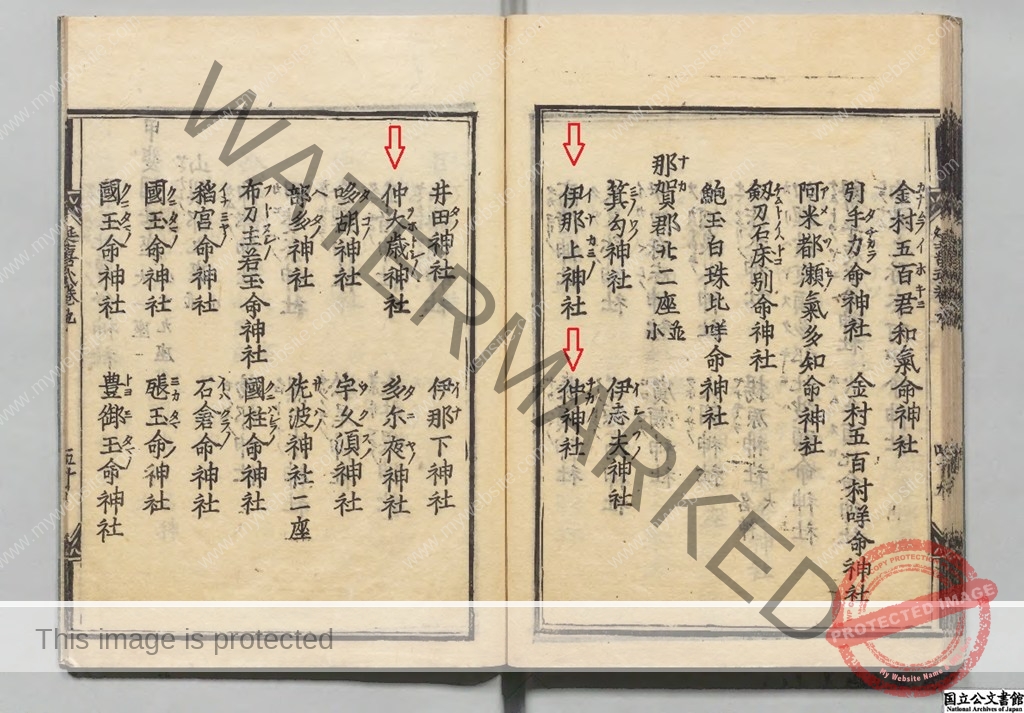 金村五百君和氣命神社
引手力命神社 金村五百村咩命神社
阿米都瀬氣多知命神社
劔刀石床別命神社
鮑玉白珠比咩命神社
那賀郡廿二座並小
箕勾神社 伊志夫神社
伊那上神社 仲神社
井田神社 伊那下神社
仲大歳神社 多尔夜神社
哆胡神社 宇久須神社
部多神社 佐波神社二座
布刀主若玉命神社 國柱命神社
稻宮命神社 石倉命神社
國玉命神社
國玉命神社 豊御玉命神社
延喜式巻九
五十
WATERMARKED
COPY PROTECTION
PROTECTED IMAGE
My Website Name
This image is protected
国立公文書館
National Archives of Japan